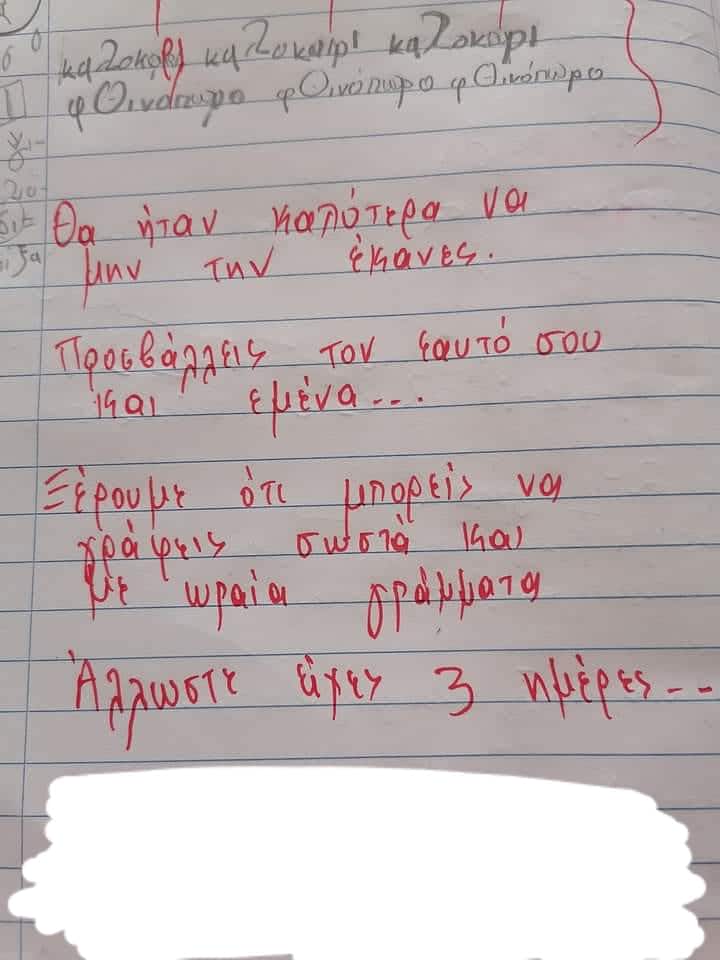 καλοκαίρι καλοκαιρι καλοκαρι
φθινοπωρο φθινόπωρο φθινόπωρο
Θα ήταν καλύτερα να
μην την έκανες.
Προσβάλλεις τον εαυτό σου
και εμένα...
Ξέρουμε ότι μπορείς να
γράψεις σωστά και
με ωραία γράμματα
Άλλωστε είχες 3 ημέρες--